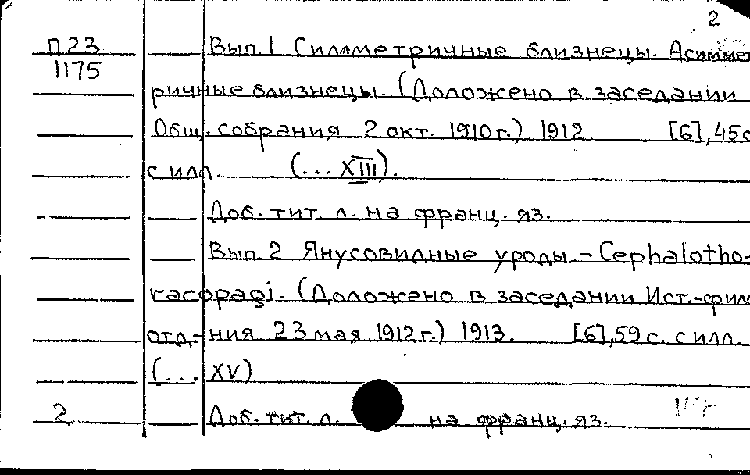 2
П23 Вып.1 Симметричные близнецы. Асиммет
1175
ричные близнецы. (Доложено в заседании
Общ. собрания 2 окт. 1910 г.) 1912 [6], 45 с
с илл. (... XIII).
Доб. тит. л. на франц. яз.
Вып. 2 Янусовидные уроды. - Cephalotho-
racopagi. (Доложено в заседании Ист.-фил.
отд-ния 23 мая 1912 г.) 1913. [6], 59 с. с илл.
(... XV)
2 Доб. тит. л. на франц. яз.